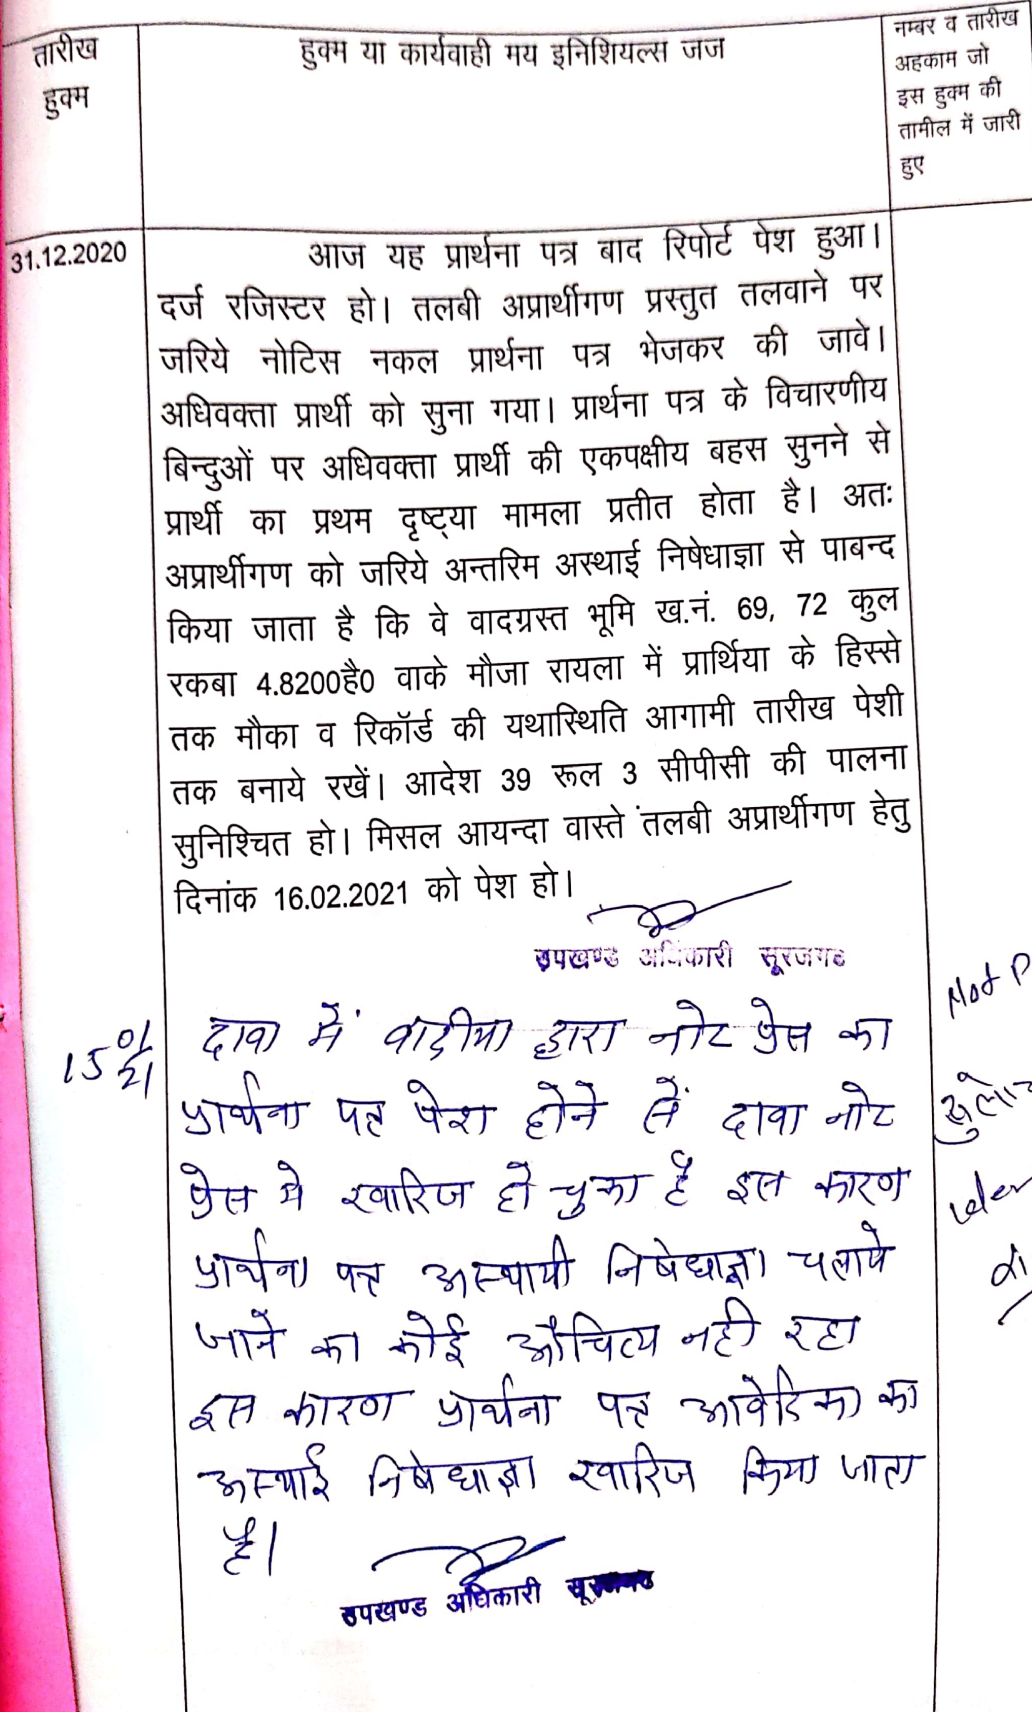 तारीख
हुक्म
हुक्म या कार्यवाही मय इनिशियल्स जज
नम्बर व तारीख
अहकाम जो
इस हुक्म की
तामील में जारी
हुए
31.12.2020
आज यह प्रार्थना पत्र बाद रिपोर्ट पेश हुआ।
दर्ज रजिस्टर हो। तलबी अप्रार्थीगण प्रस्तुत तलवाने पर
जरिये नोटिस नकल प्रार्थना पत्र भेजकर की जावे।
अधिवक्ता प्रार्थी को सुना गया। प्रार्थना पत्र के विचारणीय
बिन्दुओं पर अधिवक्ता प्रार्थी की एकपक्षीय बहस सुनने से
प्रार्थी का प्रथम दृष्ट्या मामला प्रतीत होता है। अतः
अप्रार्थीगण को जरिये अन्तरिम अस्थाई निषेधाज्ञा से पाबन्द
किया जाता है कि वे वादग्रस्त भूमि ख.नं. 69, 72 कुल
रकबा 4.8200है0 वाके मौजा रायला में प्रार्थिया के हिस्से
तक मौका व रिकॉर्ड की यथास्थिति आगामी तारीख पेशी
तक बनाये रखें। आदेश 39 रूल 3 सीपीसी की पालना
सुनिश्चित हो। मिसल आयन्दा वास्ते तलबी अप्रार्थीगण हेतु
दिनांक 16.02.2021 को पेश हो।
उपखण्ड अधिकारी सूरजगढ
15 01/21
दावा में वादीया द्वारा नोट प्रेस का
प्रार्थना पत्र पेश होने से दावा नोट
प्रेस मे खारिज हो चुका है इस कारण
प्रार्थना पत्र अस्थायी निषेधाज्ञा चलाये
जाने का कोई औचित्य नही रहा
इस कारण प्रार्थना पत्र आवेदिका का
अस्थाई निषेधाज्ञा खारिज किया जाता
है।
उपखण्ड अधिकारी सूरजगढ
Not P